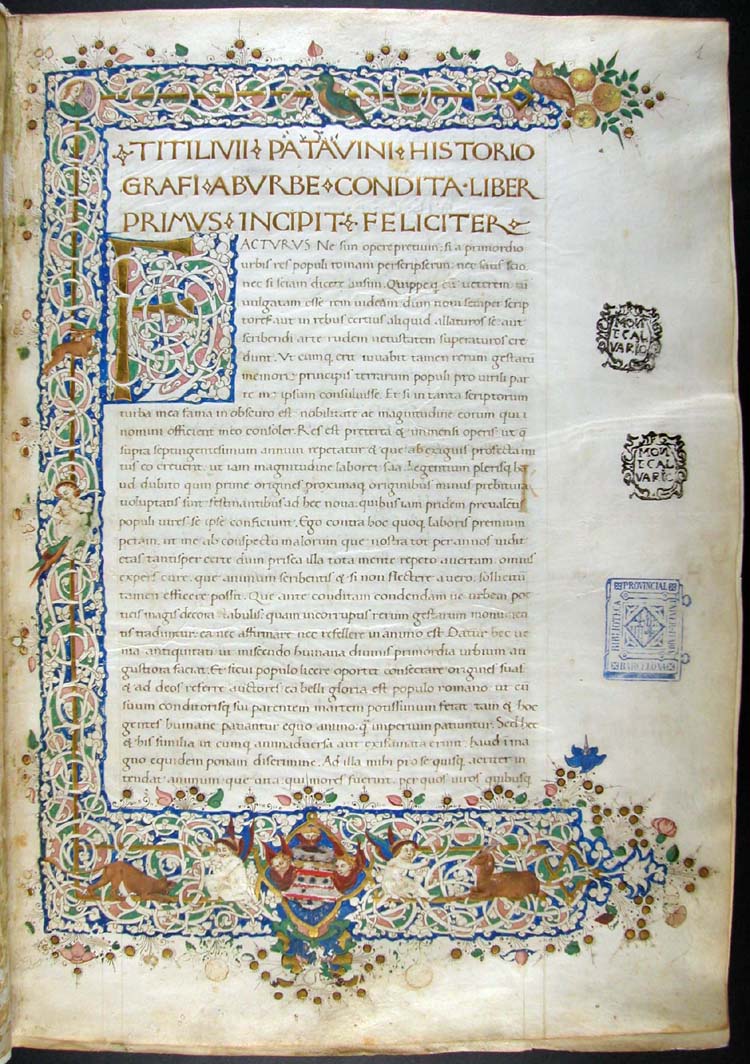 TITI LIVII PATAVINI HISTORIO
GRAFI AB VRBE CONDITA LIBER
PRIMVS INCIPIT FELICITER
FACTURUS Ne sim opere pretium: si a primordio
urbis res populi romani perscripserim nec satis scio
nec si sciam dicere ausim. Quippe q cū veterem
vulgatam esse rem videam dum novi semper scrip
tores aut in rebus certius aliquid allaturos se aut
scribendi arte rudem vetustatem superaturos cre
dunt. Vt cumq erit iuvabit tamen rerum gestarū
memorie principis terrarum populi pro virili par
te me ipsum consuluisse. Et si in tanta scriptorum
turba mea fama in obscuro est nobilitate ac magnitudine eorum qui
nomini officient meo consoler. Res est preterea & immensi operis ut q
supra septingentesimum annum repetatur & que ab exiguis
eo creverit ut iam magnitudine laboret sua. legentium plerisq
ud dubito quin prime origines proximaq originibus minus prebitura
voluptatis sint festinantibus ad hec nova: quibus iam pridem prevalētis
populi vires se ipse conficiunt. Ego contra hoc quoq laboris premium
petam. ut me ab conspectu malorum que nostra tot per annos vidit
etas tantisper certe dum prisca illa tota mente repeto avertam. omnis
expers cure. que animum scribentis & si non flectere a vero. sollicitū
tamen efficere possit. Que ante conditam condendam ne urbem poe
ticis magis decora fabulis: quam incorruptis rerum gestarum monumen
tis traduntur. ea nec affirmare nec refellere in animo est. Datur hec ve
nia antiquitati ut miscendo humana divinis primordia urbium au
gustiora faciat. Et si cui populo licere oportet consecrare origines suas
& ad deos referre auctores: ea belli gloria est populo romano. ut cū
suum conditorisq sui parentem martem potissimum ferat tam & hoc
gentes humane patiantur equo animo. q imperium patiuntur. Sed hec
& his similia ut cumq animadversa aut existimata erunt: haud in ma
gno equidem ponam discrimine. Ad illa mihi pro se quisq acriter in
tendat animum que vita. qui mores fuerint. per quos viros quibusq
MON
TE CAL
VARIO
MON
TE CAL
VARIO
PROVINCIAL
BIBLIOTECA
BARCELONA